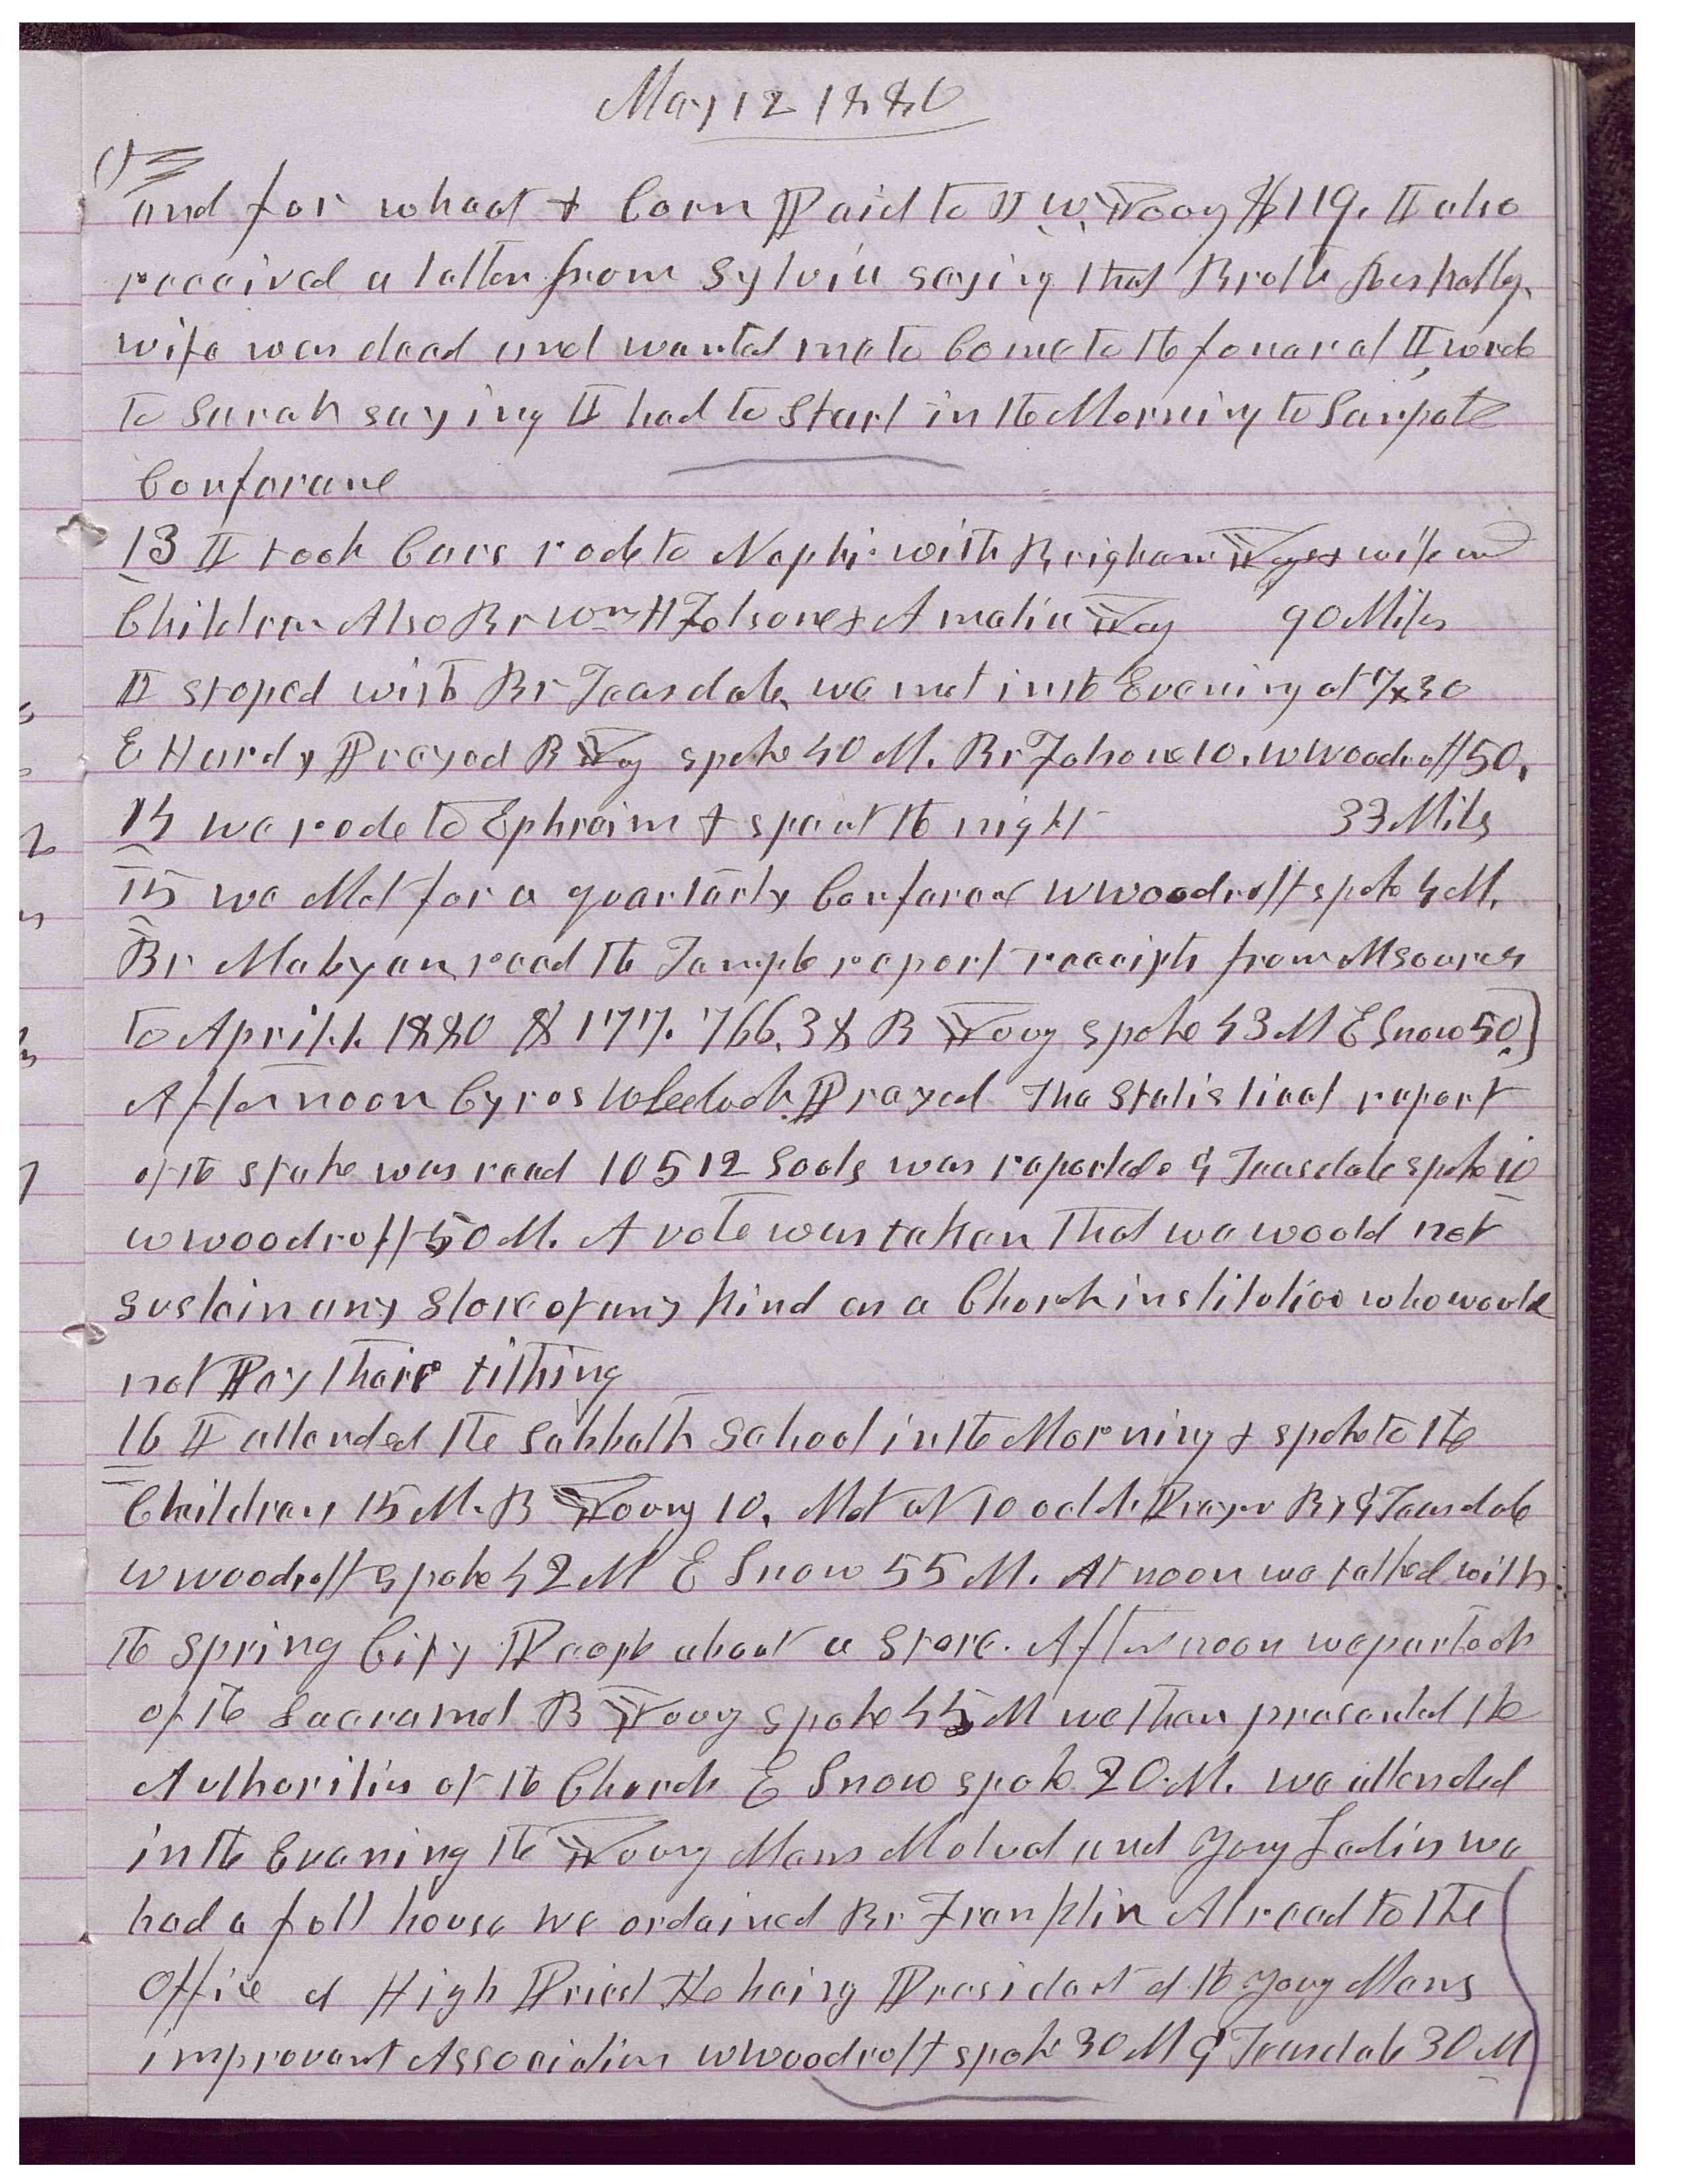 May 12 1880
and for wheat & Corn Paid to J W. Young $119. I also
received a letter from Sylvia saying that Broth
wife was dead and wanted me to Come to the funeral I wrote
to Sarah saying I had to Start in the Morning to Sanpete
Conferance
13 I took Cars rode to Nephi with Brigham Young & wife and
Children Also Br Wm H Folsome & Amelia Young 90 Miles
I stoped with Br Teasdale. we met in the Evening at 7x30
E Hardy Prayed B Young spoke 40 M. Br Folsome 10. W Woodruff 50.
14 we rode to Ephraim & spent the night 33 Miles
15 we Met for a quarterly Conferance W Woodruff spoke 4 M.
Br Mabyan read the Temple report receipts from All sources
to April.1. 1880 $177.766.38 B Young spoke 43 M E Snow 50.
Afternoon Cyrus Wheelock Prayed The Statistical report
of the stake was read 10512 Souls was reported G Teasdale spoke 10
W Woodruff 50 M. A vote was taken that we would not
sustain any Store of any kind as a Church institution who would
not Pay their tithing
16 I attended the Sabbath School in the Morning & spoke to the
Children 15 M. B Young 10. Met at 10 oclok. Prayer By G Teasdale
W Woodruff spoke 42 M E Snow 55 M. At noon we talked with
the Spring City People about a Store. Afternoon we partook
of the Sacrament B Young spoke 45 M we then presented the
Authorities of the Church E Snow spoke 20. M. we attended
in the Evening the Young Mens Mutual and Young Ladies we
had a full house we ordained Br Franklin Alread to the
Office of High Priest He being President of the Young Mens
improvement Association W Woodruff spoke 30 M G Teasdale 30 M